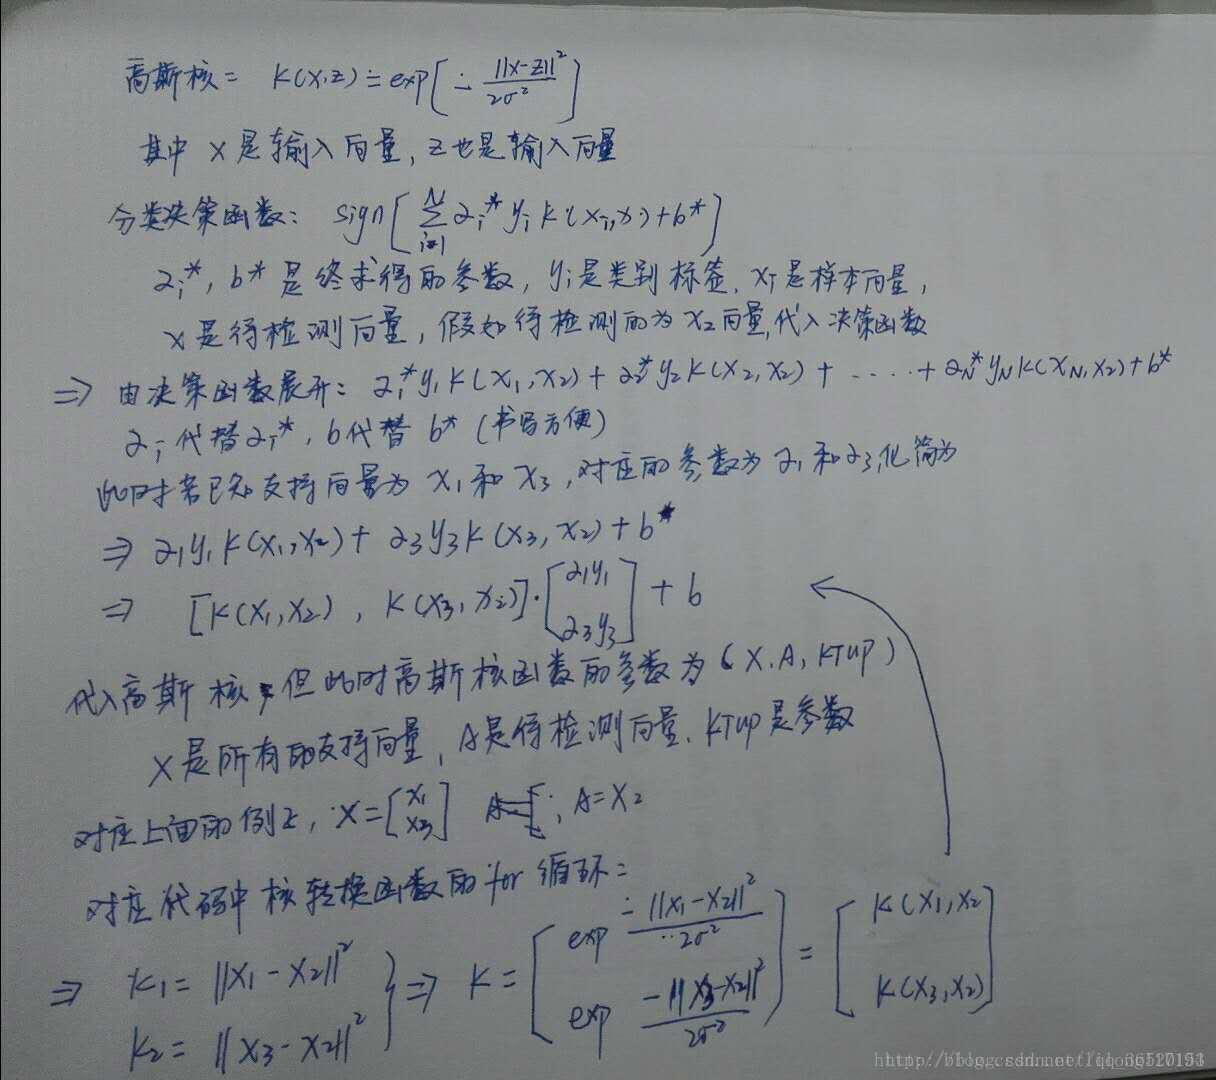 高斯核: K(x,z) = exp[- ||x-z||²/2σ²]
其中 x是输入向量, z也是输入向量
分类决策函数: sign[∑_{i=1}^{N} α_i* y_i K(x_i,x)+b*]
α_i*, b* 是终求得的参数, y_i是类别标签, x_i是样本向量,
x是待检测向量, 假如待检测的为x₂向量,代入决策函数
⇒ 由决策函数展开: α₁*y₁K(x₁,x₂)+α₂*y₂K(x₂,x₂)+.....+α_N*y_NK(x_N,x₂)+b*
α_i代替α_i*, b代替 b* (书写方便)
此时若已知支持向量为 x₁和 x₃, 对应的参数为 α₁和α₃,化简为
⇒ α₁y₁K(x₁,x₂)+ α₃y₃K(x₃,x₂)+b*
⇒ [K(x₁,x₂), K(x₃,x₂)]·[α₁y₁ α₃y₃] + b
代入高斯核,但此时高斯核函数的参数为(X,A,KTup)
X是所有的支持向量, A是待检测向量, KTup是参数
对应上面的例子, X=[x₁ x₃] ; A=X₂
对应代码中核转换函数的for循环:
⇒ K₁= ||X₁-X₂||² K₂= ||X₃-X₂||² } ⇒ K= [exp -||X₁-X₂||²/2σ² exp -||X₃-X₂||²/2σ²] = [K(X₁,X₂) K(X₃,X₂)]